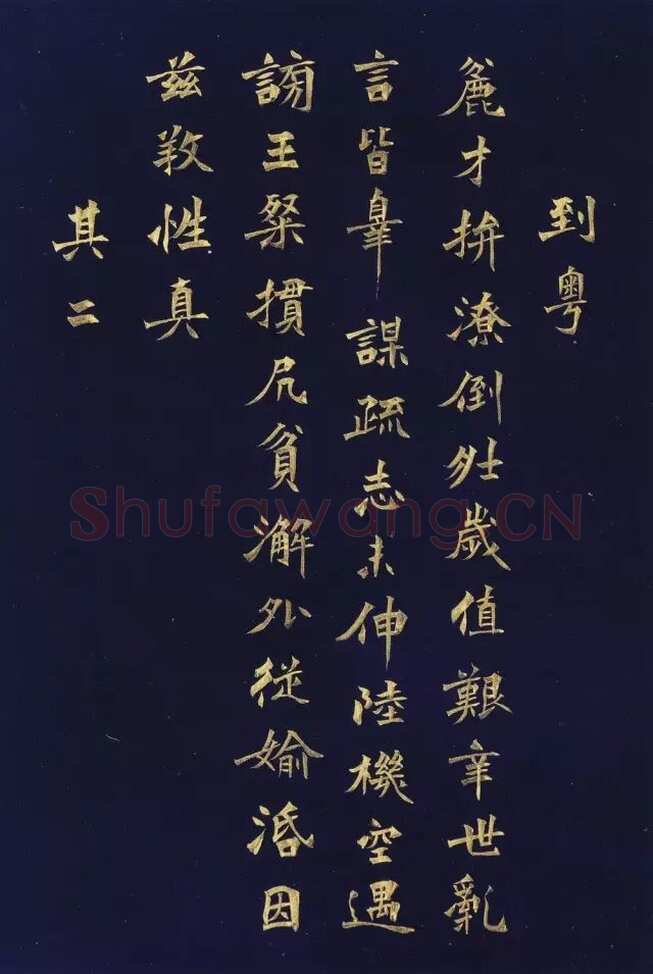 到粤
麁才拚潦倒壯歲值艱辛世亂
言皆辠謀疏志未伸陸機空遇
謗王粲摜凥貧澥外從婾因
兹性真
其二
Shufawang.CN